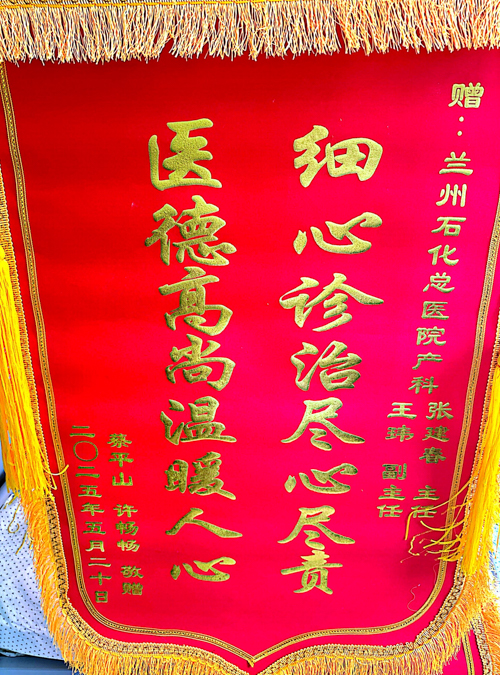 赠：兰州石化总医院产科张建春 主任
王玮 副主任
细心诊治尽心尽责
医德高尚温暖人心
蔡平山 许畅畅 敬赠
二〇二五年五月二十日